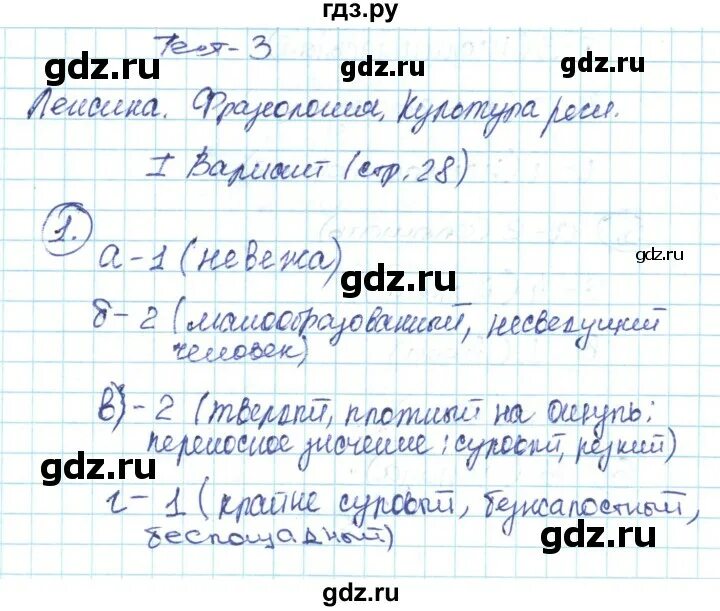 гдз.ру
Тест-3
gdz.ru gdz.ru
Лексика. Фразеология, Культура речи.
I Вариант (стр. 28)
1.
а-1 (невежа)
gdz.ru
gdz.ru
б-2 (малообразованный, несведущий
человек)
в)-2 (твердый, плотный на ощупь;
переносное значение: суровый, резкий)
gdz.ru
gdz.ru
г-1 (крайне суровый, безжалостный,
беспощадный)
gdz.ru
gdz.ru
gdz.ru